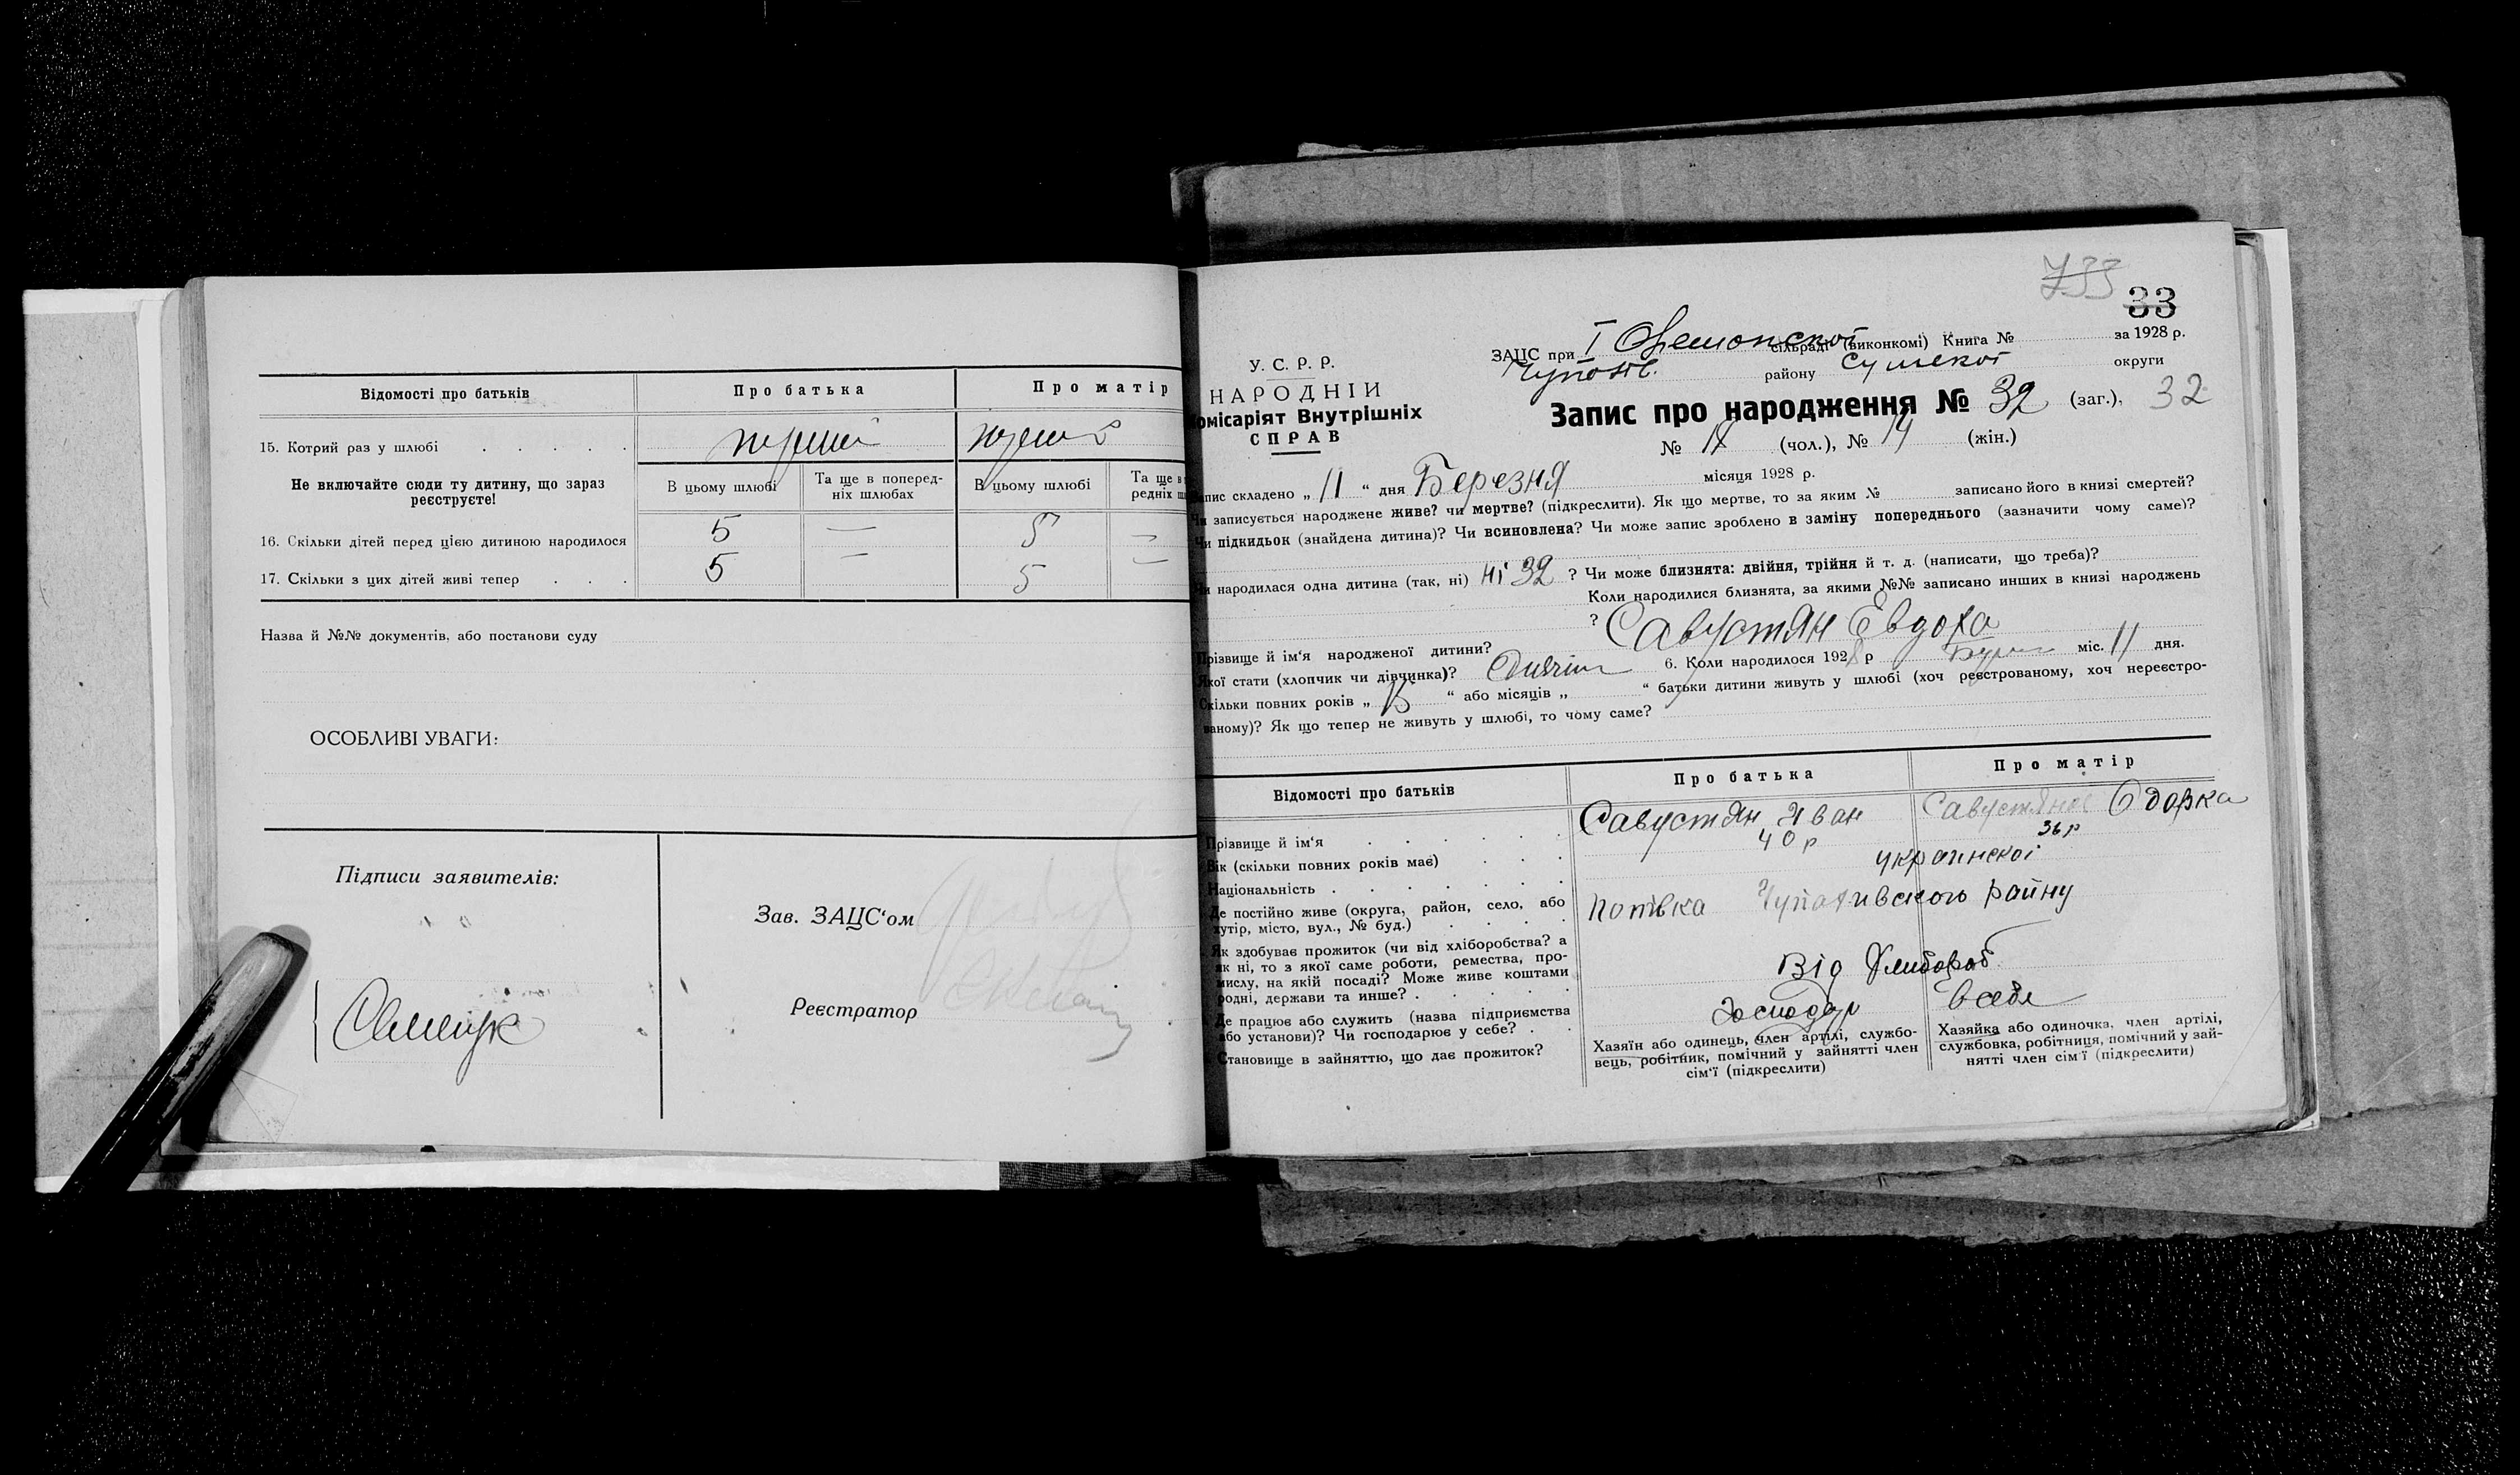 Відомості про батьків
Про батька
Про матір
15. Котрий раз у шлюбі
Не включайте сюди ту дитину, що зараз
реєструєте!
В цьому шлюбі
Та ще в поперед-
ніх шлюбах
В цьому шлюбі
Та ще в
редніх ш
16. Скільки дітей перед цією дитиною народилося 5 — 5 —
17. Скільки з цих дітей живі тепер 5 — 5 —
Назва й №№ документів, або постанови суду
ОСОБЛИВІ УВАГИ:
Підписи заявителів:
Зав. ЗАЦС'ом
Реєстратор
733
33
У. С. Р. Р.
НАРОДНІЙ
Комісаріят Внутрішніх
СПРАВ
ЗАЦС при І сільраді (виконкомі) Книга № за 1928 р.
району Сумскої округи
Запис про народження № 32 (заг.), 32
№ 18 (чол.), № 14 (жін.)
Запис складено „ 11 “ дня Березня місяця 1928 р.
Чи записується народжене живе? чи мертве? (підкреслити). Як що мертве, то за яким № записано його в книзі смертей?
Чи підкидьок (знайдена дитина)? Чи всиновлена? Чи може запис зроблено в заміну попереднього (зазначити чому саме)?
Чи народилася одна дитина (так, ні) ні 32 ? Чи може близнята: двійня, трійня й т. д. (написати, що треба)?
Коли народилися близнята, за якими №№ записано инших в книзі народжень
?
Прізвище й ім'я народженої дитини? Савустян Євдоха
Якої стати (хлопчик чи дівчинка)? 6. Коли народилося 1928 р міс. 11 дня.
Скільки повних років „ “ або місяців „ “ батьки дитини живуть у шлюбі (хоч реєстрованому, хоч нереєстро-
ваному)? Як що тепер не живуть у шлюбі, то чому саме?
Відомості про батьків
Про батька
Про матір
Прізвище й ім'я Савустян Иван Одарка
Вік (скільки повних років має) 40 р 36 р
Національність украинскоі
Де постійно живе (округа, район, село, або
хутір, місто, вул., № буд.) Попівка району
Як здобуває прожиток (чи від хліборобства? а
як ні, то з якої саме роботи, ремества, про-
мислу, на якій посаді? Може живе коштами
родні, держави та инше? Від
Де працює або служить (назва підприємства
або установи)? Чи господарює у себе? господар в себе
Становище в зайняттю, що дає прожиток?
Хазяїн або одинець, член артілі, службо-
вець, робітник, помічний у зайнятті член
сім'ї (підкреслити)
Хазяйка або одиночка, член артілі,
службовка, робітниця, помічний у зай-
нятті член сім'ї (підкреслити)